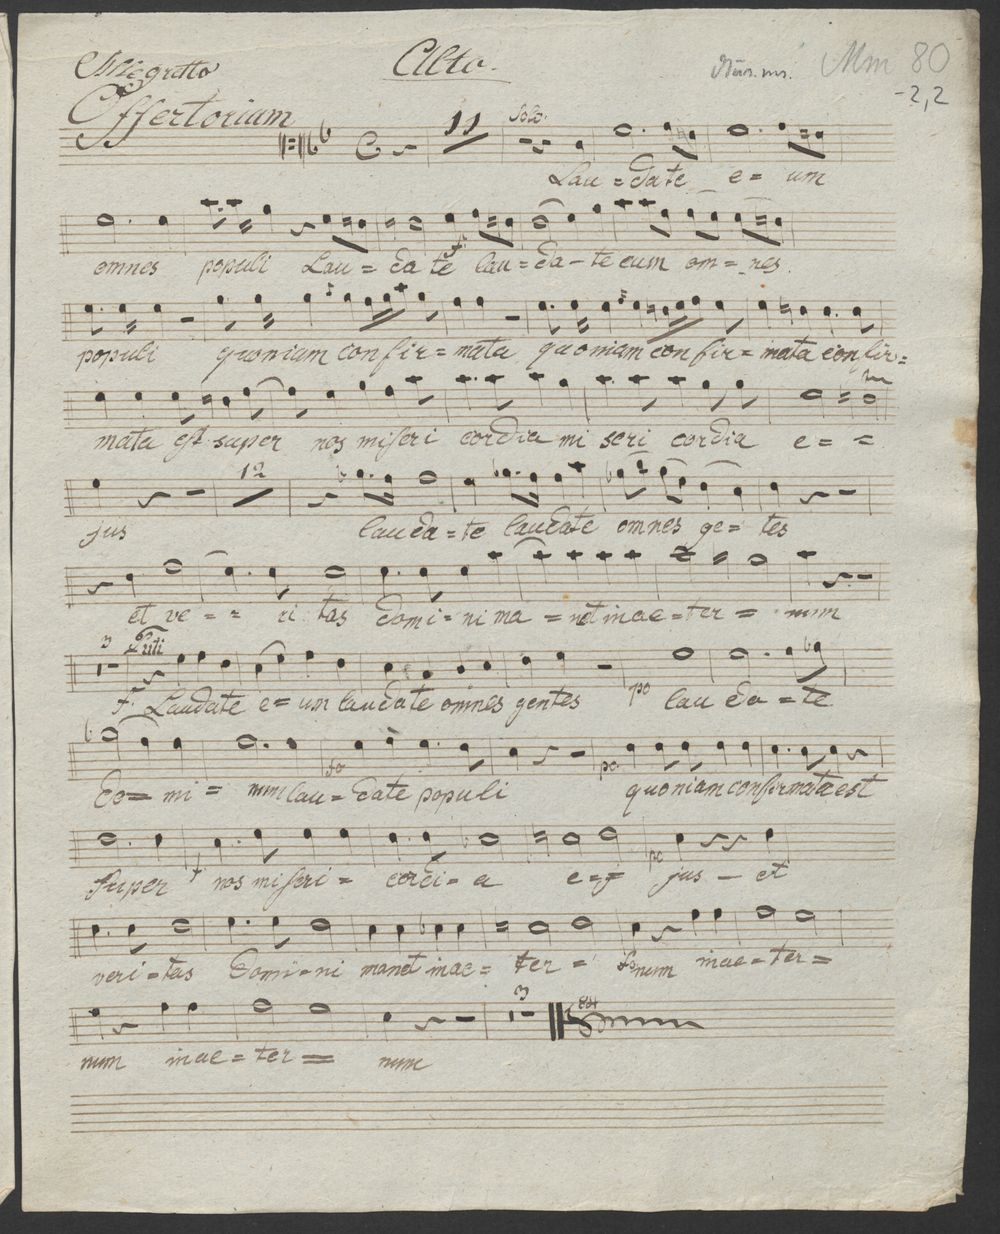 Allegretto
Alto.
Mus. ms.
Mm 80
-2,2
Offertorium
11
Solo.
Lau = date e = um
omnes populi Lau = da te lau = da - te eum om = nes.
populi quoniam confir = mata quoniam confir = mata confir =
mata est super nos miseri cordia mi seri cordia e = =
jus 12 lauda = te laudate omnes ge = tes
et ve = = ri tas domi = ni ma = net in ae = ter = num
3 Tutti
f. Laudate e = um laudate omnes gentes po lau da = te
do = mi = num fo lau = date populi po. quoniam confirmata est
super f nos miseri = cordi = a e = j po jus - et
veri = tas Domi = ni manet in ae = ter = fo num in ae = ter =
num in ae = ter = num 3
84